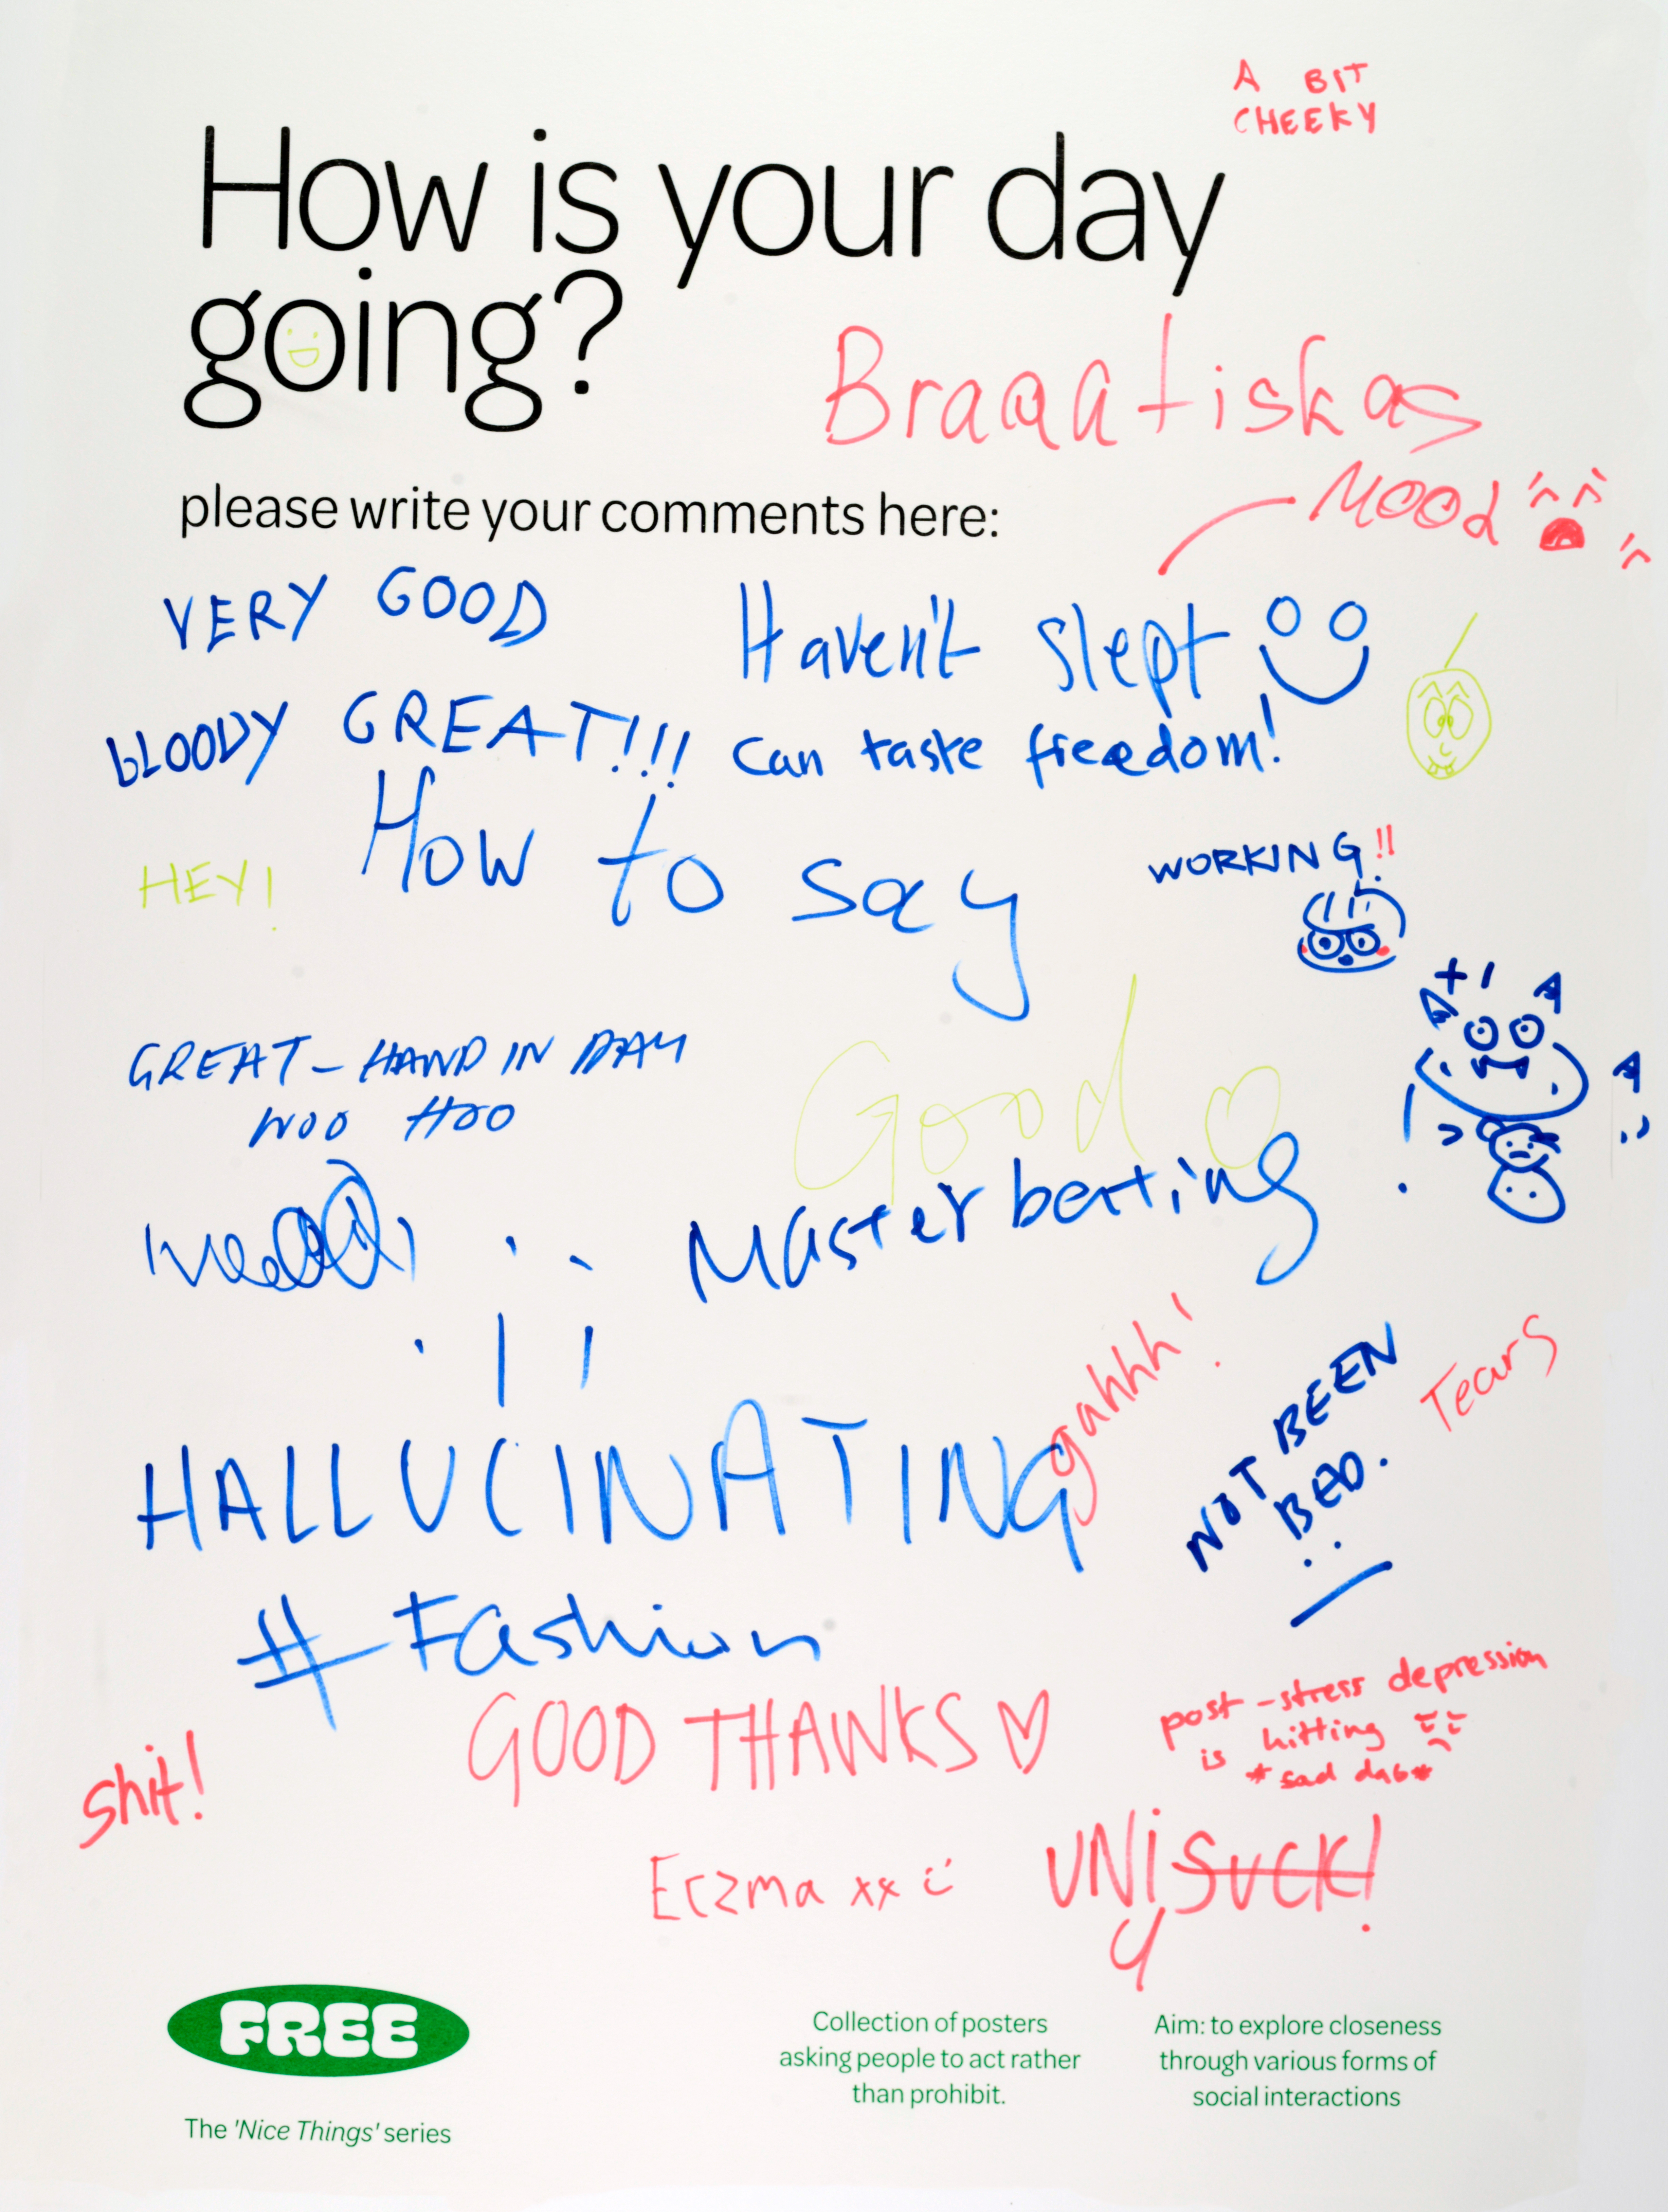 A BIT
CHEEKY
How is your day
going?
Braaatiskas
MOOd
please write your comments here:
VERY GOOD
Haven't slept
BLOODY GREAT!!!
can taste freedom!
HEY!
How to say
WORKING!!
+1
GREAT - HAND IN DAY
WOO HOO
Good
Masterbating
gahhh!
HALLUCINATING
NOT BEEN
BAD.
Tears
#Fashion
GOOD THANKS ♡
post-stress depression
is hitting
*sad dab*
shit!
UNi SUCK!
Eczma xx :)
FREE
The 'Nice Things' series
Collection of posters
asking people to act rather
than prohibit.
Aim: to explore closeness
through various forms of
social interactions